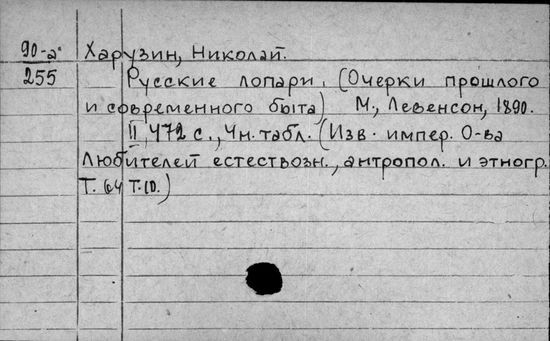 90-а
255
Харузин, Николай.
Русские лопари. (Очерки прошлого
и современного быта) М., Левенсон, 1890.
II, 472 с., 4 н. табл. (Изв. импер. О-ва
любителей естествозн., антропол. и этногр.
Т. 64 Т.